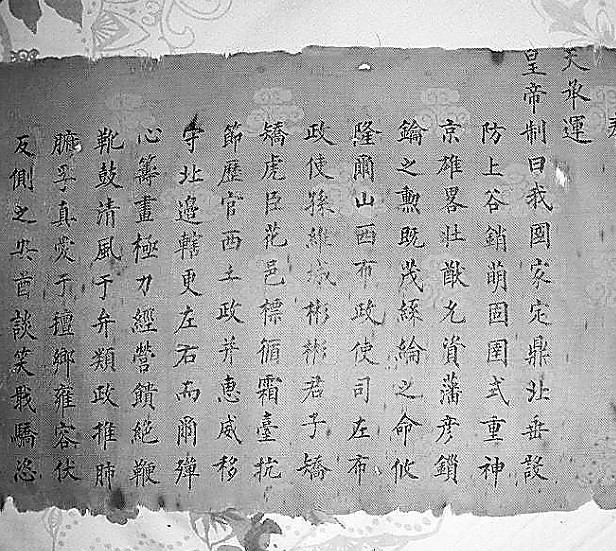 天承運
皇帝制曰我國家定鼎北垂設
防上谷銷萌固圉式重神
京雄畧壯猷允資藩彦鎖
鑰之勲既茂綵綸之命攸
隆爾山西布政使司左布
政使孫維城彬彬君子矯
矯虎臣花邑標循霜臺抗
節歷官西土政并惠威移
守北邊轄更左右而爾殫
心籌畫極力經營饋絶鞭
靴鼓清風于弁類政推肺
腑孚真愛于氊鄉雍容伏
反側之夷酋談笑戢驕恣